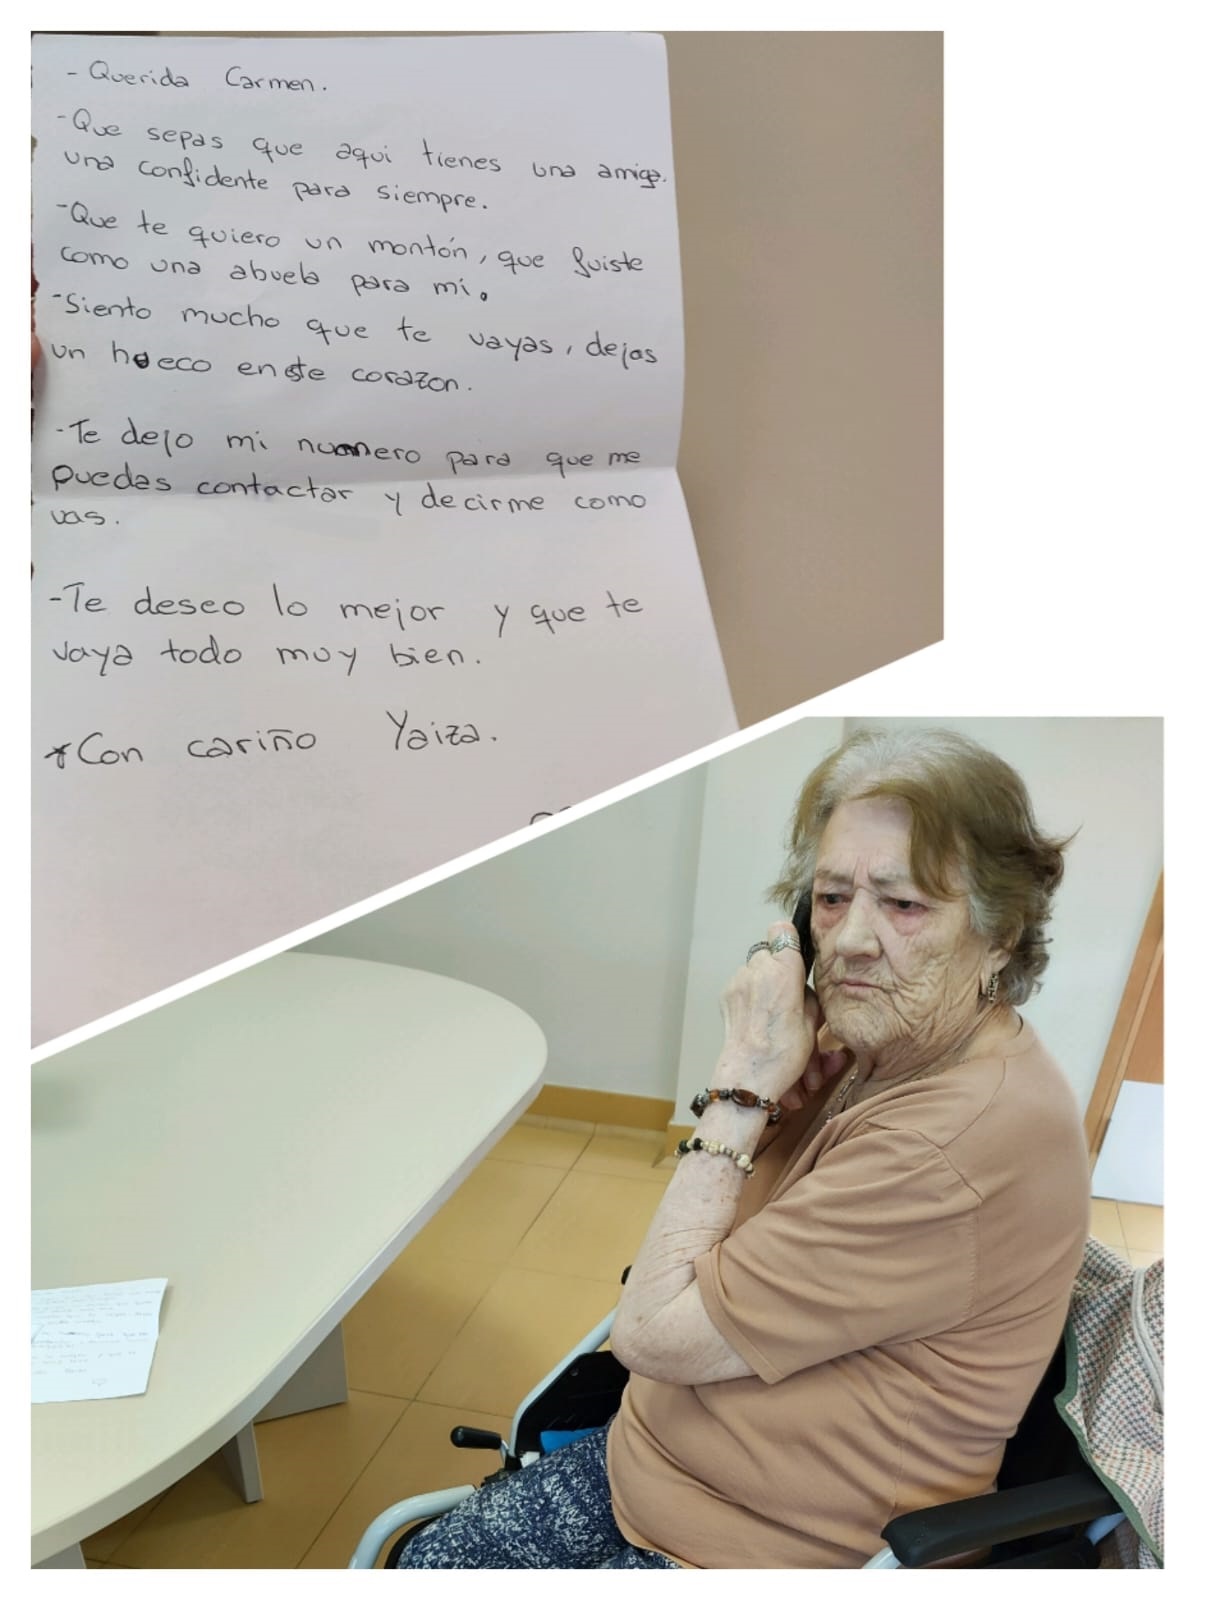 - Querida Carmen.
- Que sepas que aqui tienes una amiga.
una confidente para siempre.
- Que te quiero un montón, que fuiste
como una abuela para mi.
- Siento mucho que te vayas, dejas
un hueco en este corazon.
- Te dejo mi numero para que me
puedas contactar y decirme como
vas.
- Te deseo lo mejor y que te
vaya todo muy bien.
* Con cariño Yaiza.